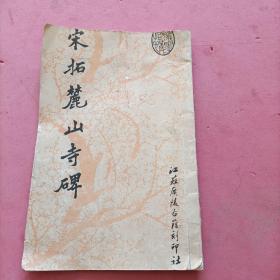 宋拓麓山寺碑
江苏广陵古籍刻印社